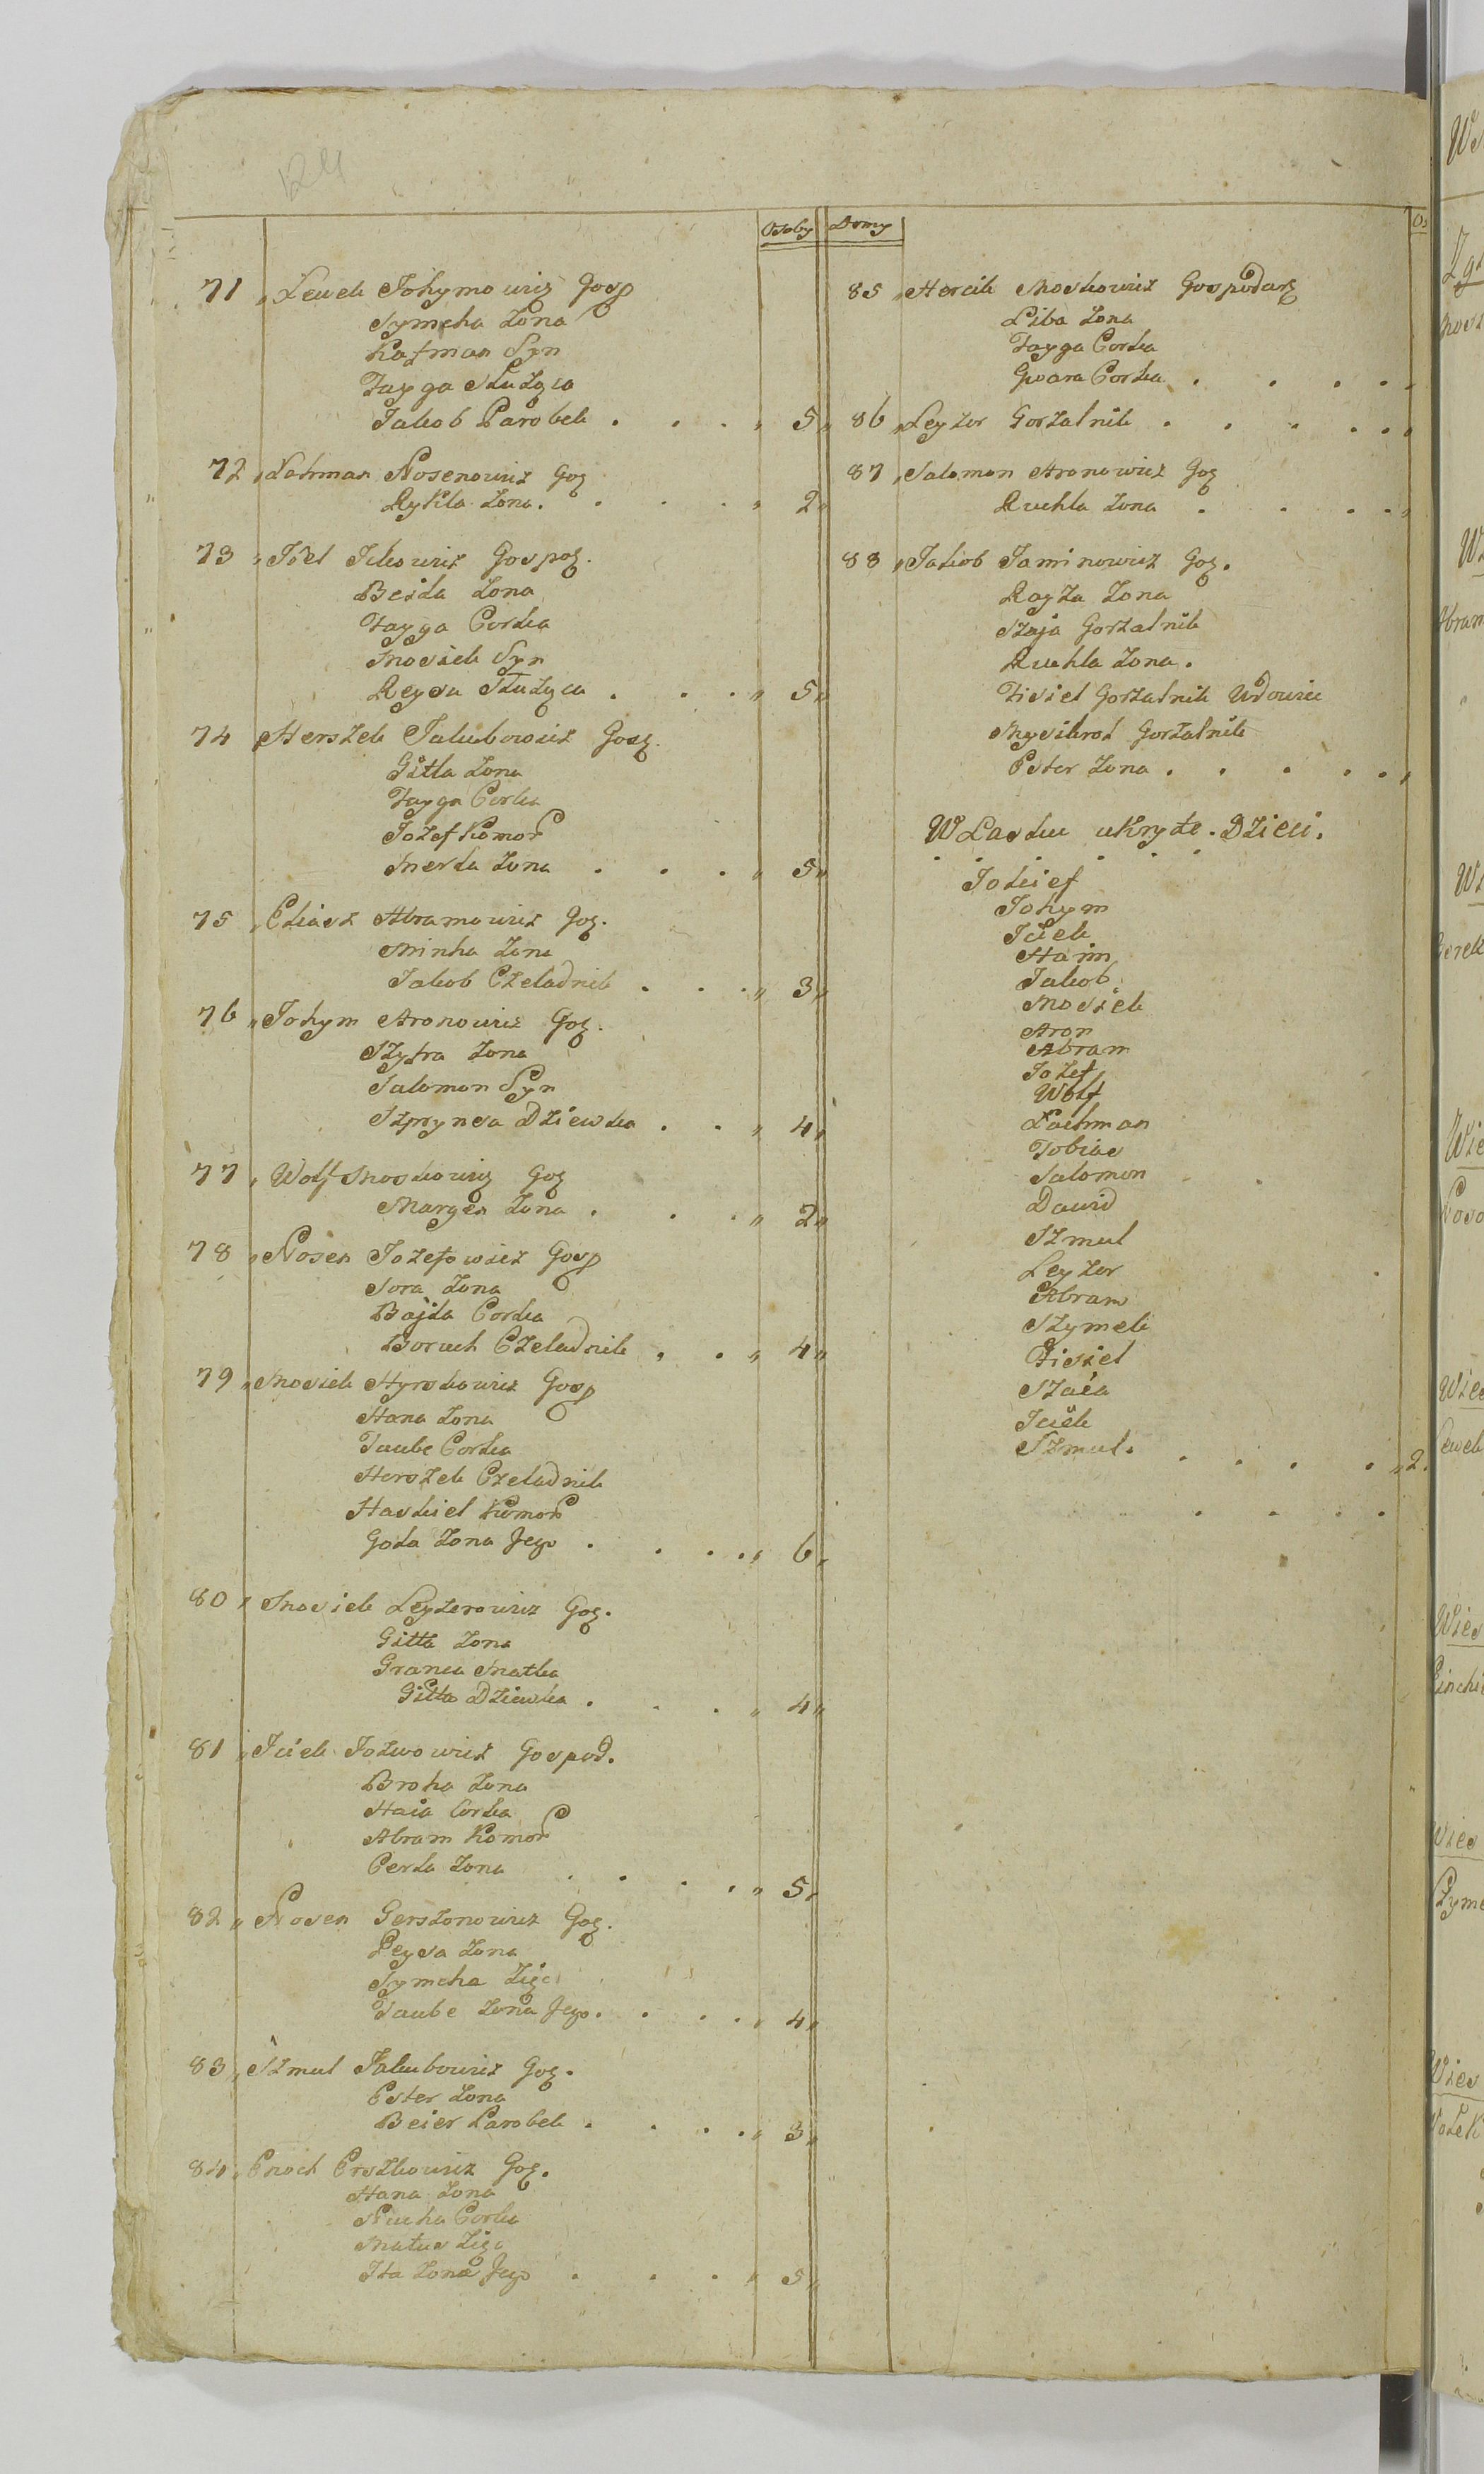 124
Osoby
71 Lewek Johymowicz Gosp
Symcha Zona
Kafman Syn
Fayga Służąca
Jakob Parobek 5
72 Lahman Nosenowicz Gos
Rykla Zona 2
73 Joel Jckowicz Gospo.
Besda Zona
Fayga Corka
Mosiek Syn
Reysa Służąca 5
74 Herszek Jakubowicz Gos.
Gitla Zona
Fayga Corka
Jozef Komor
Merla Zona 5
75 Eliasz Abramowicz Gos.
Minha Zona
Jakob Czeladnik 3
76 Johym Aronowicz Gos.
Szyfra Zona
Salomon Syn
Szprynca Dziewka 4
77 Wolf Moskowicz Gos
Margen Zona 2
78 Nosen Jozefowicz Gosp
Sora Zona
Bajla Corka
Boruch Czeladnik 4
79 Mosiek Hyrskowicz Gosp
Hana Zona
Taube Corka
Herszek Czeladnik
Haskiel Komor
Golda Zona Jego 6
80 Mosiek Leyzerowicz Gos.
Gitta Zona
Granca Matka
Gitta Dziewka 4
81 Jciek Jozwowicz Gospod.
Broha Zona
Haia Corka
Abram Komor
Perla Zona 5
82 Nosen Gerszonowicz Gos.
Leysa Zona
Symcha Zięc
Taube Zona Jego 4
83 Szmul Jakubowicz Gos.
Ester Zona
Beier Parobek 3
84 Enoch Erszkowicz Gos.
Hana Zona
Niucha Corka
Matus Zięc
Ita Zona Jego 5
Domy
85 Hercik Moskowicz Gospodarz
Liba Zona
Fayga Corka
Gwara Corka
86 Leyzor Gorzalnik
87 Salomon Aronowicz Gos
Ruchla Zona
88 Jakob Jaminowicz Gos.
Rayza Zona
Szaja Gorzalnik
Ruchla Zona.
Fisiel Gorzalnik Wdowiec
Gorzalnik
Ester Zona
W Lasku ukryte Dzieci.
Joskief
Johym
Jciek
Haim
Jakob
Mosiek
Aron
Abram
Jozef
Wolf
Lachman
Tobias
Salomon
Dawid
Szmul
Leyzor
Abram
Szymek
Fisiel
Szaia
Jciek
Szmul. 2